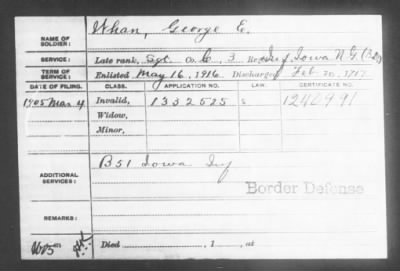 NAME OF SOLDIER: Whan, George E.
SERVICE: Late rank, Sgt. Co. C, 3 Reg't Inf. Iowa N G
TERM OF SERVICE: Enlisted May 16, 1916. Discharged Feb 20, 1917
DATE OF FILING. CLASS. APPLICATION NO. LAW. CERTIFICATE NO.
1925 Mar 4 Invalid, 1332525 S 1240991
Widow,
Minor,
ADDITIONAL SERVICES: B 51 Iowa Inf
Border Defense
REMARKS:
Died , 1 , at